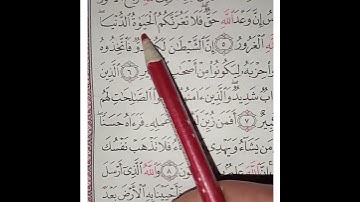 سُ إِنَّ وَعْدَ ٱللَّهِ حَقٌّ فَلَا تَغُرَّنَّكُمُ ٱلْحَيَوٰةُ ٱلدُّنْيَا
ٱللَّهِ ٱلْغَرُورُ ٥ إِنَّ ٱلشَّيْطَٰنَ فَٱتَّخِذُوهُ
حِزْبَهُۥ لِيَكُونُوا۟ مِنْ ٦ ٱلَّذِينَ
شَدِيدٌ وَعَمِلُوا۟ ٱلصَّٰلِحَٰتِ لَهُم
٧ أَفَمَن زُيِّنَ فَرَءَاهُ حَسَنًا
مَن يَشَآءُ وَيَهْدِى فَلَا تَذْهَبْ نَفْسُكَ
ٱللَّهَ ٨ وَٱللَّهُ ٱلَّذِىٓ أَرْسَلَ
فَأَحْيَيْنَا بِهِ ٱلْأَرْضَ بَعْدَ